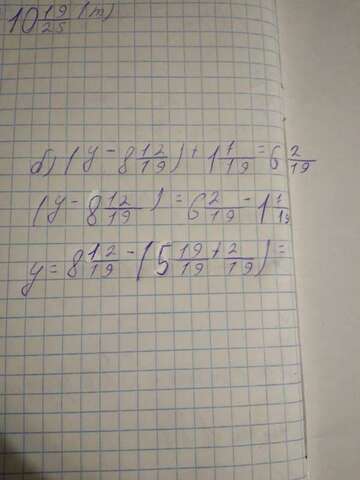 10 19/25 (т)
б) (y - 8 12/19) + 1 7/19 = 6 2/19
(y - 8 12/19) = 6 2/19 - 1 7/19
y = 8 12/19 - (5 19/19 + 2/19) =